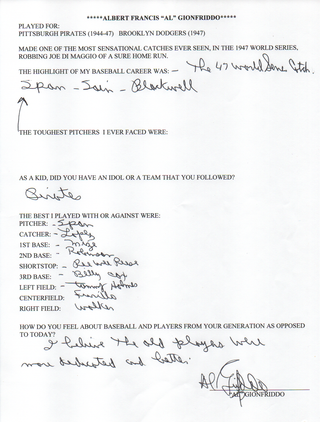 *****ALBERT FRANCIS "AL" GIONFRIDDO*****
PLAYED FOR:
PITTSBURGH PIRATES (1944-47) BROOKLYN DODGERS (1947)
MADE ONE OF THE MOST SENSATIONAL CATCHES EVER SEEN, IN THE 1947 WORLD SERIES,
ROBBING JOE DI MAGGIO OF A SURE HOME RUN.
THE HIGHLIGHT OF MY BASEBALL CAREER WAS: - The 47 World Series Catch.
Span - Sain - Blackwell
THE TOUGHEST PITCHERS I EVER FACED WERE:
AS A KID, DID YOU HAVE AN IDOL OR A TEAM THAT YOU FOLLOWED?
Pirates
THE BEST I PLAYED WITH OR AGAINST WERE:
PITCHER: - Span
CATCHER: - Lopez
1ST BASE: - Mize
2ND BASE: - Robinson
SHORTSTOP: - Pee Wee Reese
3RD BASE: - Billy Cox
LEFT FIELD: - Tommy Holmes
CENTERFIELD: Furillo
RIGHT FIELD: Walker
HOW DO YOU FEEL ABOUT BASEBALL AND PLAYERS FROM YOUR GENERATION AS OPPOSED
TO TODAY?
I believe the old players were
more dedicated and better.
"AL" GIONFRIDDO